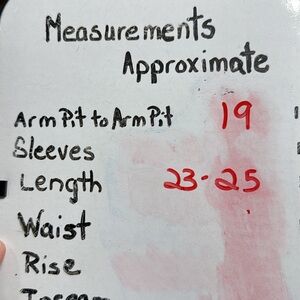 Measurements
Approximate
Arm Pit to Arm Pit 19
Sleeves
Length 23-25
Waist
Rise